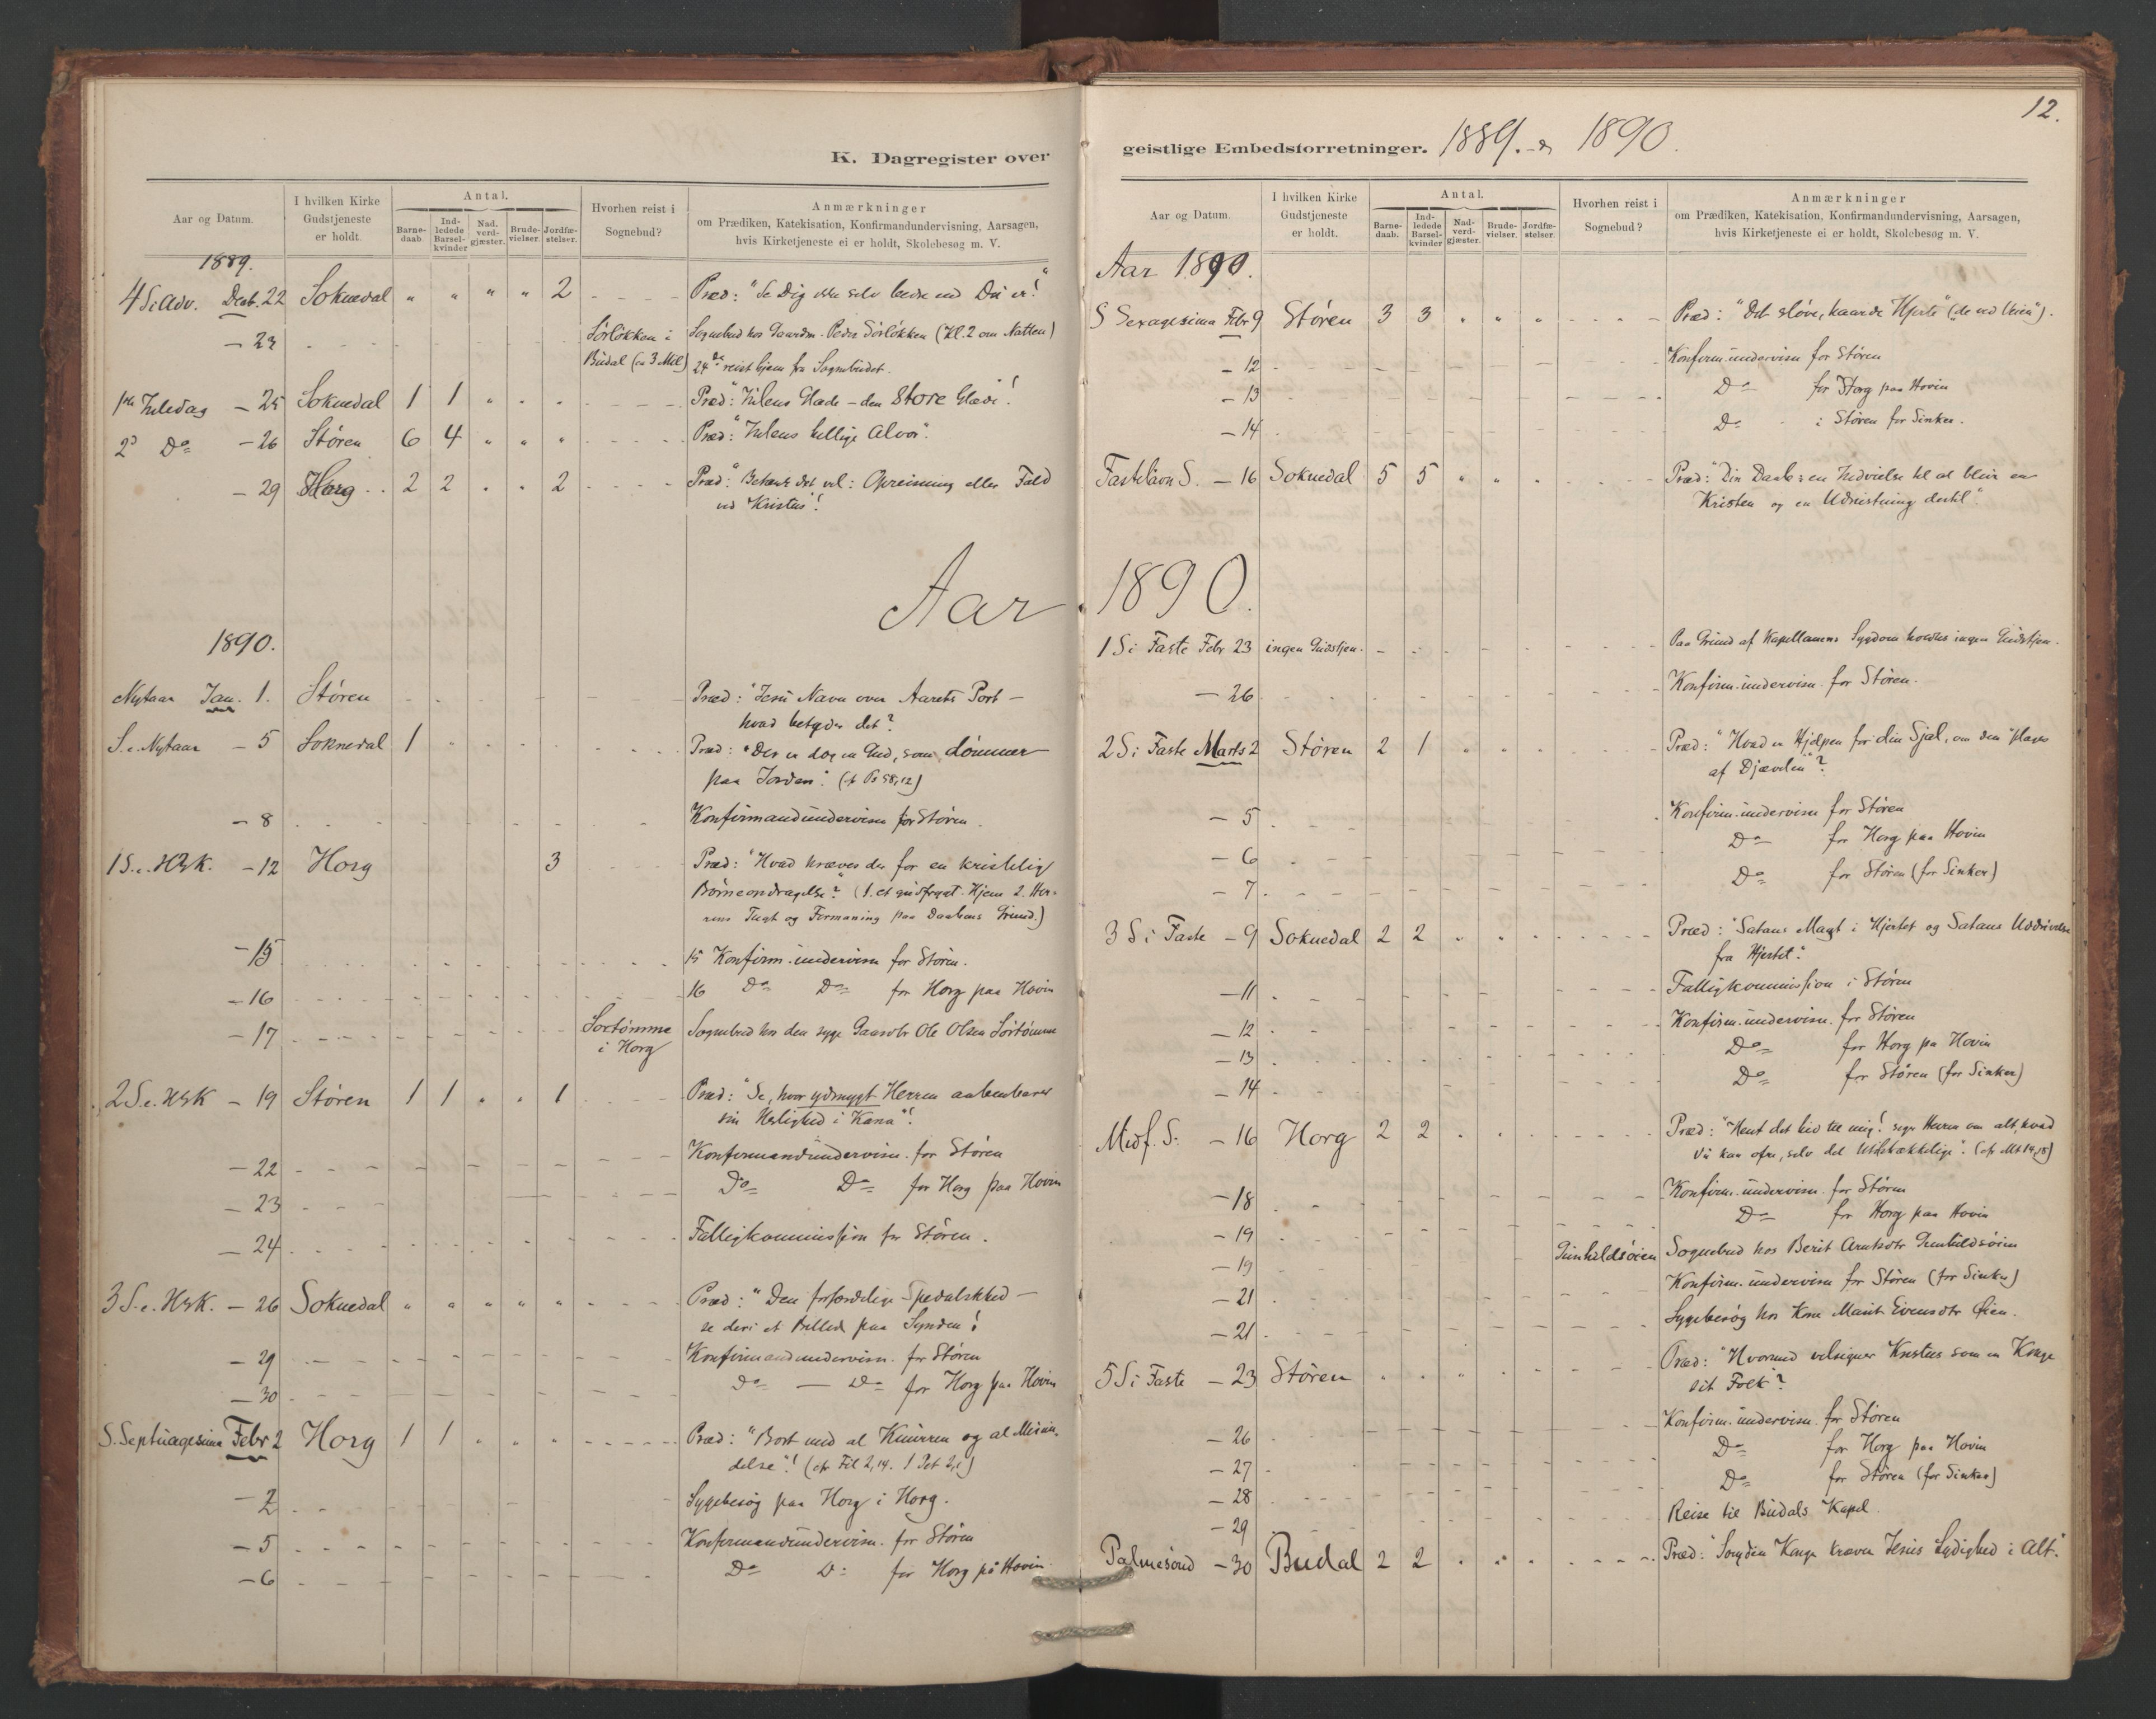 12.
K. Dagregister over
Aar og Datum. I hvilken Kirke Gudstjeneste er holdt. Antal. Barne-daab. Ind-ledede Barsel-kvinder Nad. verd-gjæster. Brude-vielser. Jordfæ-stelser. Hvorhen reist i Sognebud? Anmærkninger
om Prædiken, Katekisation, Konfirmandundervisning, Aarsagen,
hvis Kirketjeneste ei er holdt, Skolebesøg m. V.
1889.
4 S i Adv. Decb. 22 Soknedal " " " " 2 Præd: "Se Dig ikke selv bedre end Du er!"
— 23 Sørløkken i Sognebud hos Gaardm. Peder Sørløkken (Kl. 2 om Natten)
Budal (ca 3 Mil) 24de reist hjem fra Sognebudet.
1ste Juledag — 25 Soknedal 1 1 " " " Præd: "Julens Glæde – den Store Glæde"!
2d Do — 26 Støren 6 4 " " " Præd: "Julens hellige Alvor".
— 29 Horg 2 2 " " 2 Præd: "Betænk det vel: Opreisning eller Fald
ved Kristus"!
Aar
1890.
Nytaar Jan. 1. Støren Præd: "Jesu Navn over Aarets Port –
hvad betyder det?
S. e. Nytaar — 5 Soknedal 1 Præd: "Der er dog en Gud, som dömmer
paa Jorden". (cfr Ps 58,12)
— 8 Konfirmandundervisn for Støren.
1 S. e. H3K. — 12 Horg 3 Præd: "Hvad kræves der for en kristelig
Börneopdragelse"? (1. et gudfrygt. Hjem 2. Her-
rens Tugt og Formaning paa Daabens Grund.)
— 15 15 Konfirm. undervisn for Støren.
— 16 16 Do Do for Horg paa Hovin
— 17 Sørtømme Sognebud hos den syge Gaardbr Ole Olsen Sörtömme
i Horg
2 S. e. H3K — 19 Støren 1 1 " " 1 Præd: "Se, hvor ydmygt Herren aabenbarer
sin Herlighed i Kana"!
— 22 Konfirmandundervisn. for Støren
— 23 Do Do for Horg paa Hovin
— 24 Fattigkommission for Støren.
3 S. e. H3K. — 26 Soknedal " " " " " Præd: "Den forfærdelige Spedalskhed –
se deri et Billed paa Synden"!
— 29 Konfirmandundervisn. for Støren
— 30 Do — Do for Horg paa Hovin
S. Septuagesima Febr 2 Horg 1 1 " " " Præd: "Bort med al Knurren og al Misun-
delse"! (cfr Fil 2,14. 1 Pet 2,1)
— 2 Sygebesøg paa Horg i Horg.
— 5 Konfirmandundervisn. for Støren
— 6 Do Do for Horg på Hovin.
geistlige Embedsforretninger. 1889. & 1890.
Aar og Datum. I hvilken Kirke Gudstjeneste er holdt. Antal. Barne-daab. Ind-ledede Barsel-kvinder Nad-verd-gjæster. Brude-vielser. Jordfæ-stelser. Hvorhen reist i Sognebud? Anmærkninger
om Prædiken, Katekisation, Konfirmandundervisning, Aarsagen,
hvis Kirketjeneste ei er holdt, Skolebesøg m. V.
Aar 1890.
S Sexagesima Febr 9 Støren 3 3 " " " Præd: "Det sløve, haarde Hjerte" (de ved Veien").
— 12 Konfirm. undervisn for Støren
— 13 Do for Horg paa Hovin
— 14 Do i Støren for Sinker.
Fastelavn S. — 16 Soknedal 5 5 " " " Præd: "Din Daab: en Indvielse til at blive en
Kristen og en Udrustning dertil".
1890.
1 S i Faste Febr 23 ingen Gudstjen. Paa Grund af Kapellanens Sygdom holdtes ingen Gudstjen.
— 26 Konfirm. undervisn. for Støren.
2 S i Faste Marts 2 Støren 2 1 " " " Præd: "Hvad er Hjælpen for din Sjæl, om den plages
af Djævelen"?
— 5 Konfirm. undervisn for Støren
— 6 Do for Horg paa Hovin
— 7 Do for Støren (for Sinker)
3 S i Faste — 9 Soknedal 2 2 " " " Præd: "Satans Magt i Hjertet og Satans Uddrivelse
fra Hjertet".
— 11 Fattigkommission i Støren
— 12 Konfirm. undervisn. for Støren
— 13 Do for Horg pa Hovin
— 14 Do for Støren (for Sinker)
Midf. S. — 16 Horg 2 2 " Præd: "Hent det hid til mig! siger Herren om alt, hvad
du kan ofre, selv det Ubetækkelige". (cfr Mt 14,18)
— 18 Konfirm. undervisn. for Støren
— 19 Do for Horg paa Hovin
— 19 Gunhildsøien Sognebud hos Berit Arntsdtr Gunhildsøien
— 21 Konfirm. undervisn for Støren (for Sinker)
— 21 Sygebesøg hos Kone Marit Evensdtr Øien.
5 S i Faste — 23 Støren " " " " Præd: "Hvormed velsigner Kristus som en Konge
sit Folk"?
— 26 Konfirm. undervisn. for Støren
— 27 Do for Horg paa Hovin
— 28 Do for Støren (for Sinker)
— 29 Reise til Budals Kapel.
Palmesönd — 30 Budal 2 2 " " " Præd: "Som din Konge kræver Jesus Lydighed i Alt".